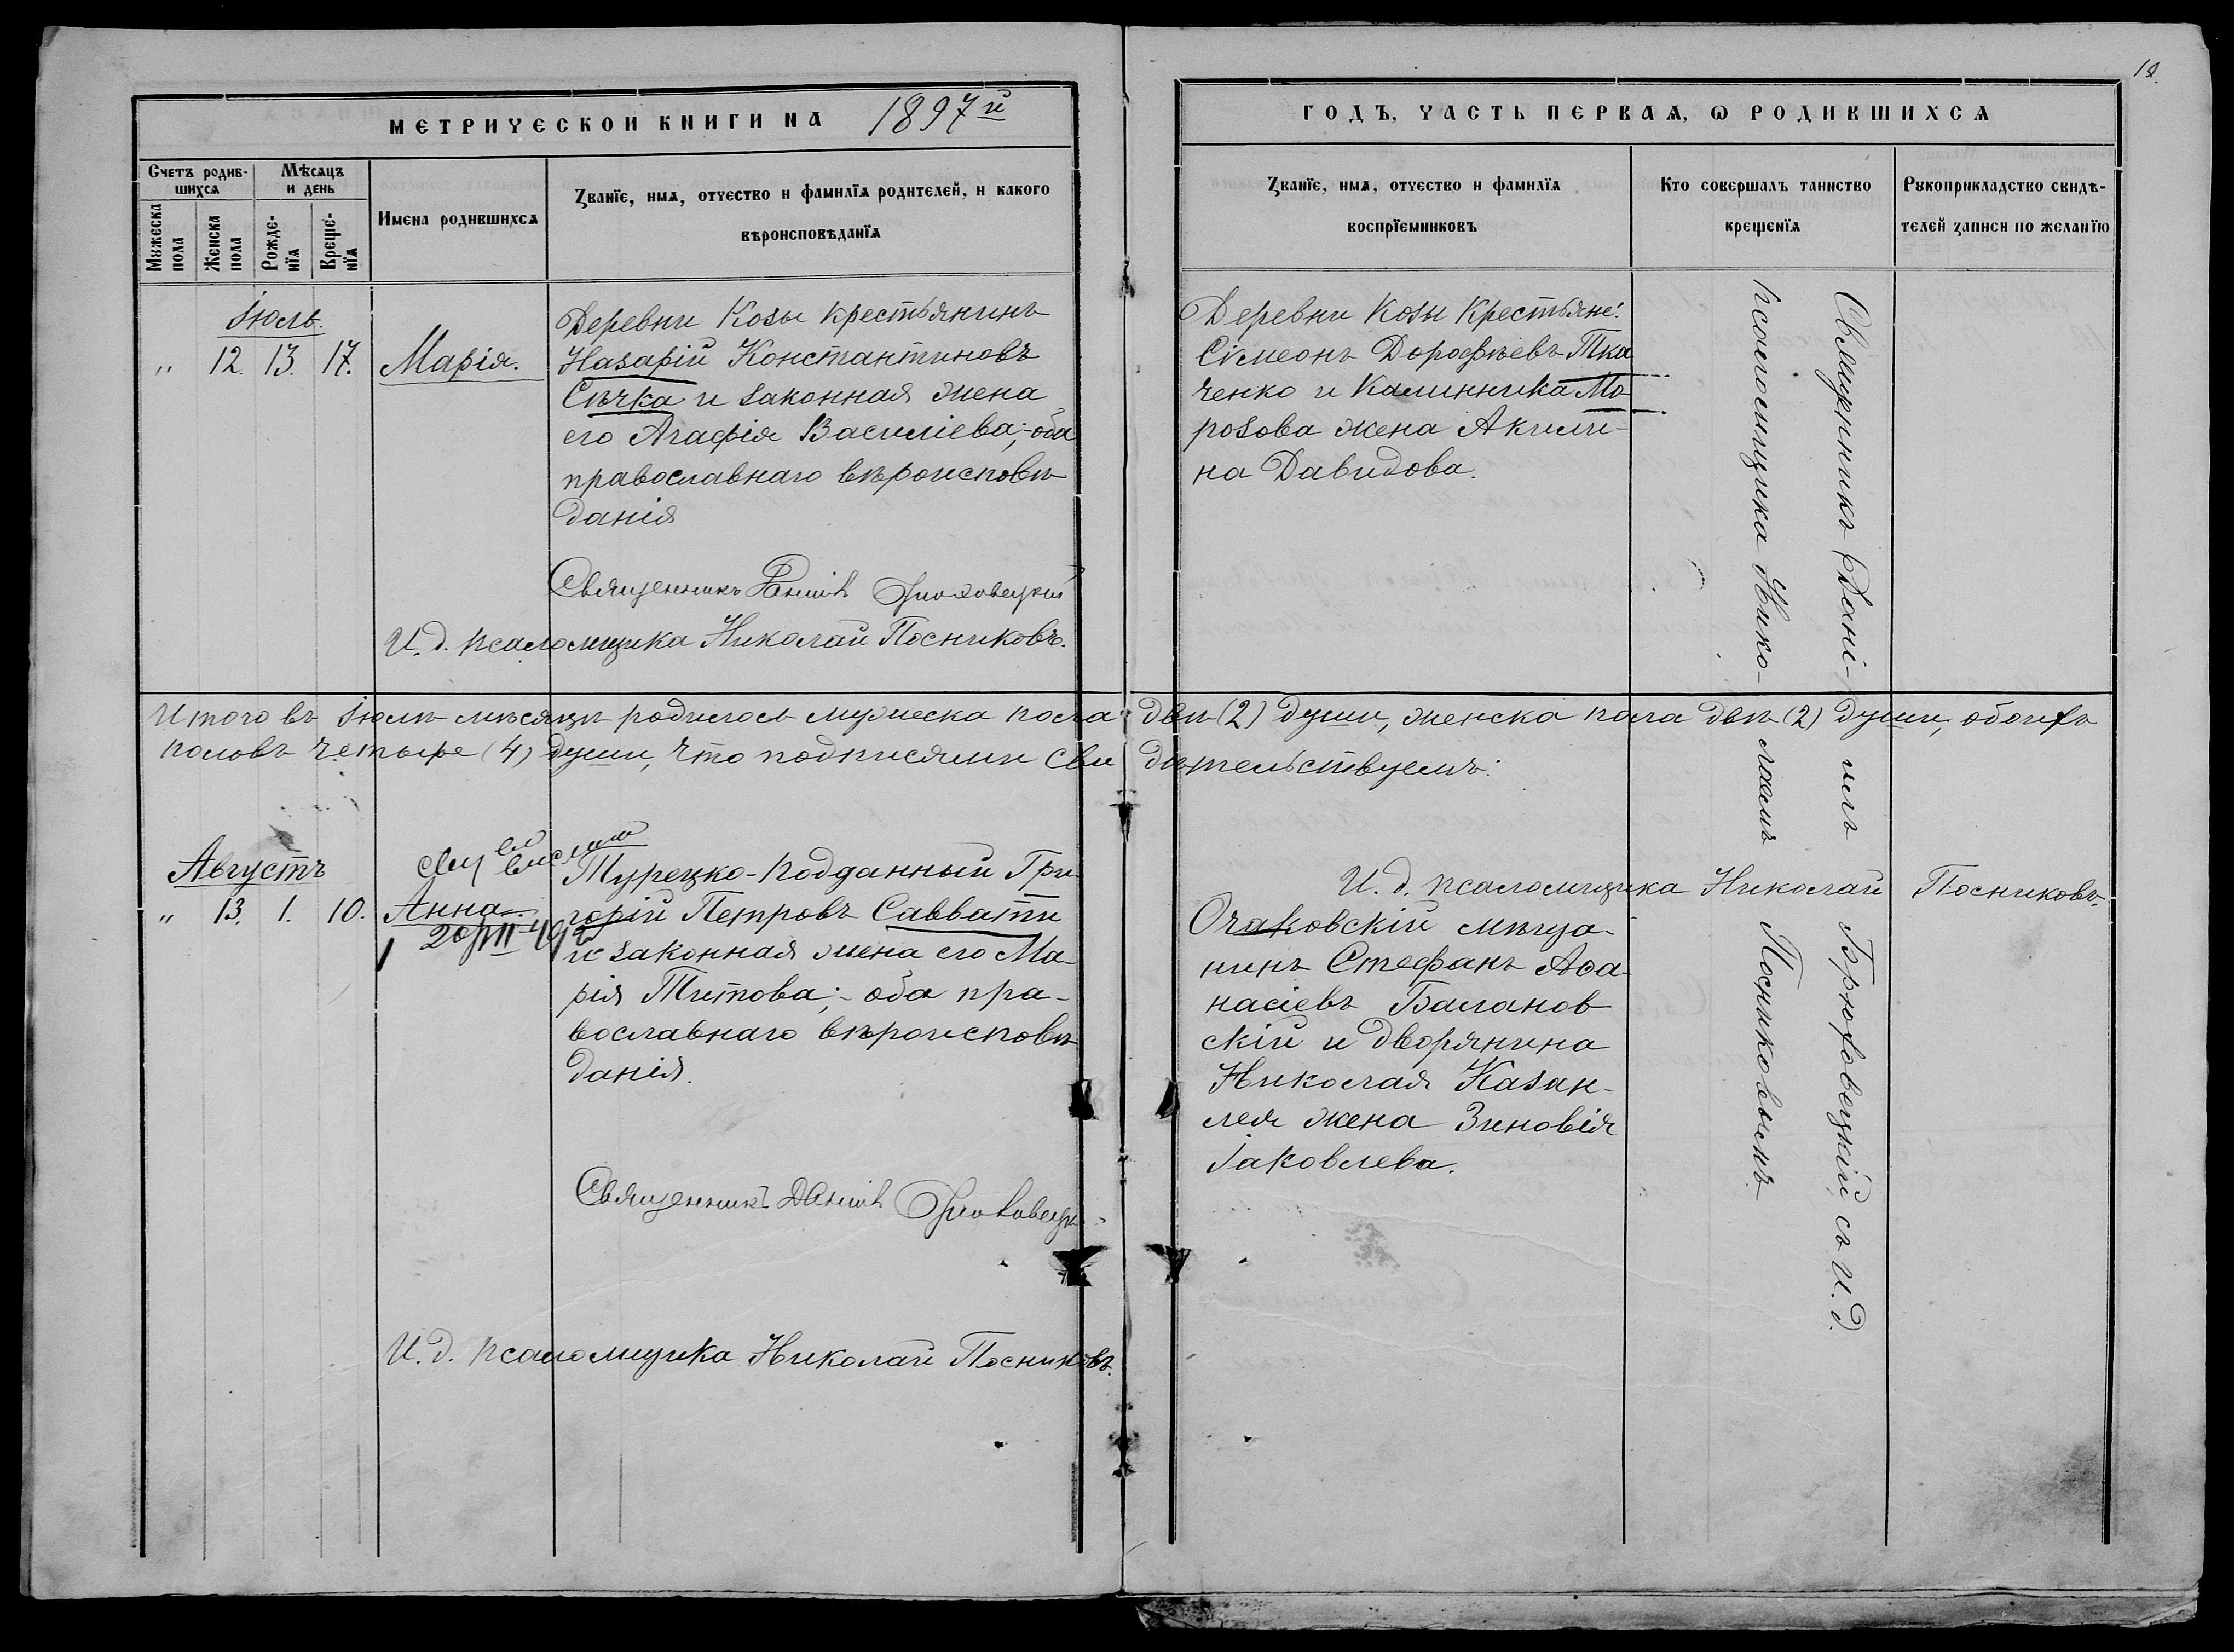 18.
МЕТРИЧЕСКОИ КНИГИ НА 1897й
ГОДЪ, ЧАСТЬ ПЕРВАѦ, Ѡ РОДИВШИХСѦ
Счетъ родив-
шихсѧ
Мѣсѧцъ
и день
Мꙋжеска
пола
Женска
пола
Рожде-
нїѧ
Креще-
нїѧ
Имена родившихсѧ
Званїе, имѧ, отчество и фамилїѧ родителей, и какого
вѣроисповѣданїѧ
Званїе, имѧ, отчество и фамилїѧ
воспрїемниковъ
Кто совершалъ таинство
крещенїѧ
Рꙋкоприкладство свидѣ-
телей записи по желанїю
Іюль.
" 12. 13. 17. Марія.
Деревни Козы крестьянинъ
Назарій Константиновъ
Сѣчка и законная жена
его Агафія Василіева; оба
православнаго вѣроисповѣ-
данія
Священникъ Даніилъ Брюховецкій
И. д. псаломщика Николай Посниковъ.
Деревни Козы крестьяне:
Сімеонъ Дорофѣевъ Тка
ченко и Калинника Мо-
розова жена Акили-
на Давидова.
Священникъ Дані-
илъ
Брюховецкій съ И. д.
псаломщика Нико-
лаемъ
Посниковымъ
Итого въ Іюлѣ мѣсяцѣ родилось мужеска пола двѣ (2) души, женска пола двѣ (2) души, обоихъ
половъ четыре (4) души, что подписями сви дѣтельствуемъ:
И. д. псаломщика Николай Посниковъ.
Августъ
" 13. 1. 10. Анна.
Турецко-подданный Гри-
горій Петровъ Саввати
и законная жена его Ма-
рія Титова; оба пра-
вославнаго вѣроисповѣ-
данія.
Священникъ Даніилъ Брюховецк
И. д. псаломщика Николай Посниковъ.
Очаковскій мѣща-
нинъ Стефанъ Аѳа-
насіевъ Баланов
скій и дворянина
Николая Казан-
лея жена Зиновія
Іаковлева.